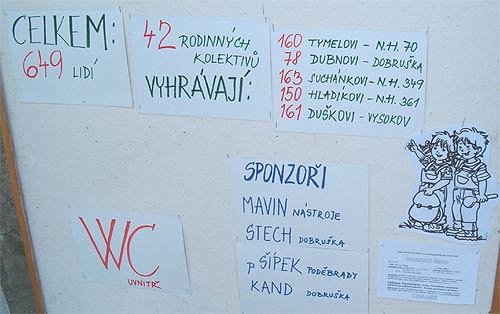 CELKEM:
649 LIDÍ
42 RODINNÝCH
KOLEKTIVŮ
VYHRÁVAJÍ:
160 TYMELOVI - N.H. 70
78 DUBNOVI - DOBRUŠKA
163 SUCHÁNKOVI - N.H. 349
150 HLADÍKOVI - N.H. 361
161 DUŠKOVI - VYSOKOV
SPONZOŘI
MAVIN NÁSTROJE
STECH DOBRUŠKA
p ŠÍPEK PODĚBRADY
KAND DOBRUŠKA
WC
UVNITŘ